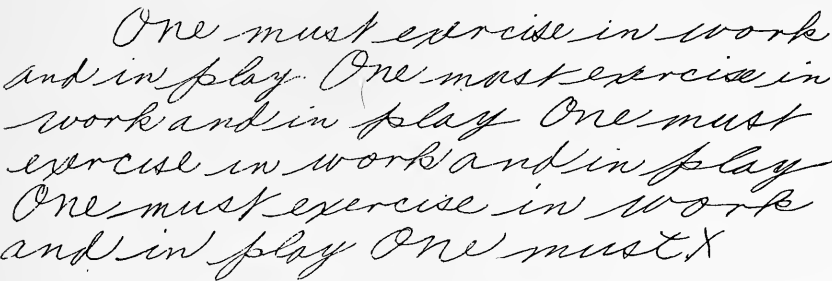 One must exercise in work
and in play. One must exercise in
work and in play One must
exercise in work and in play
One must exercise in work
and in play One must X